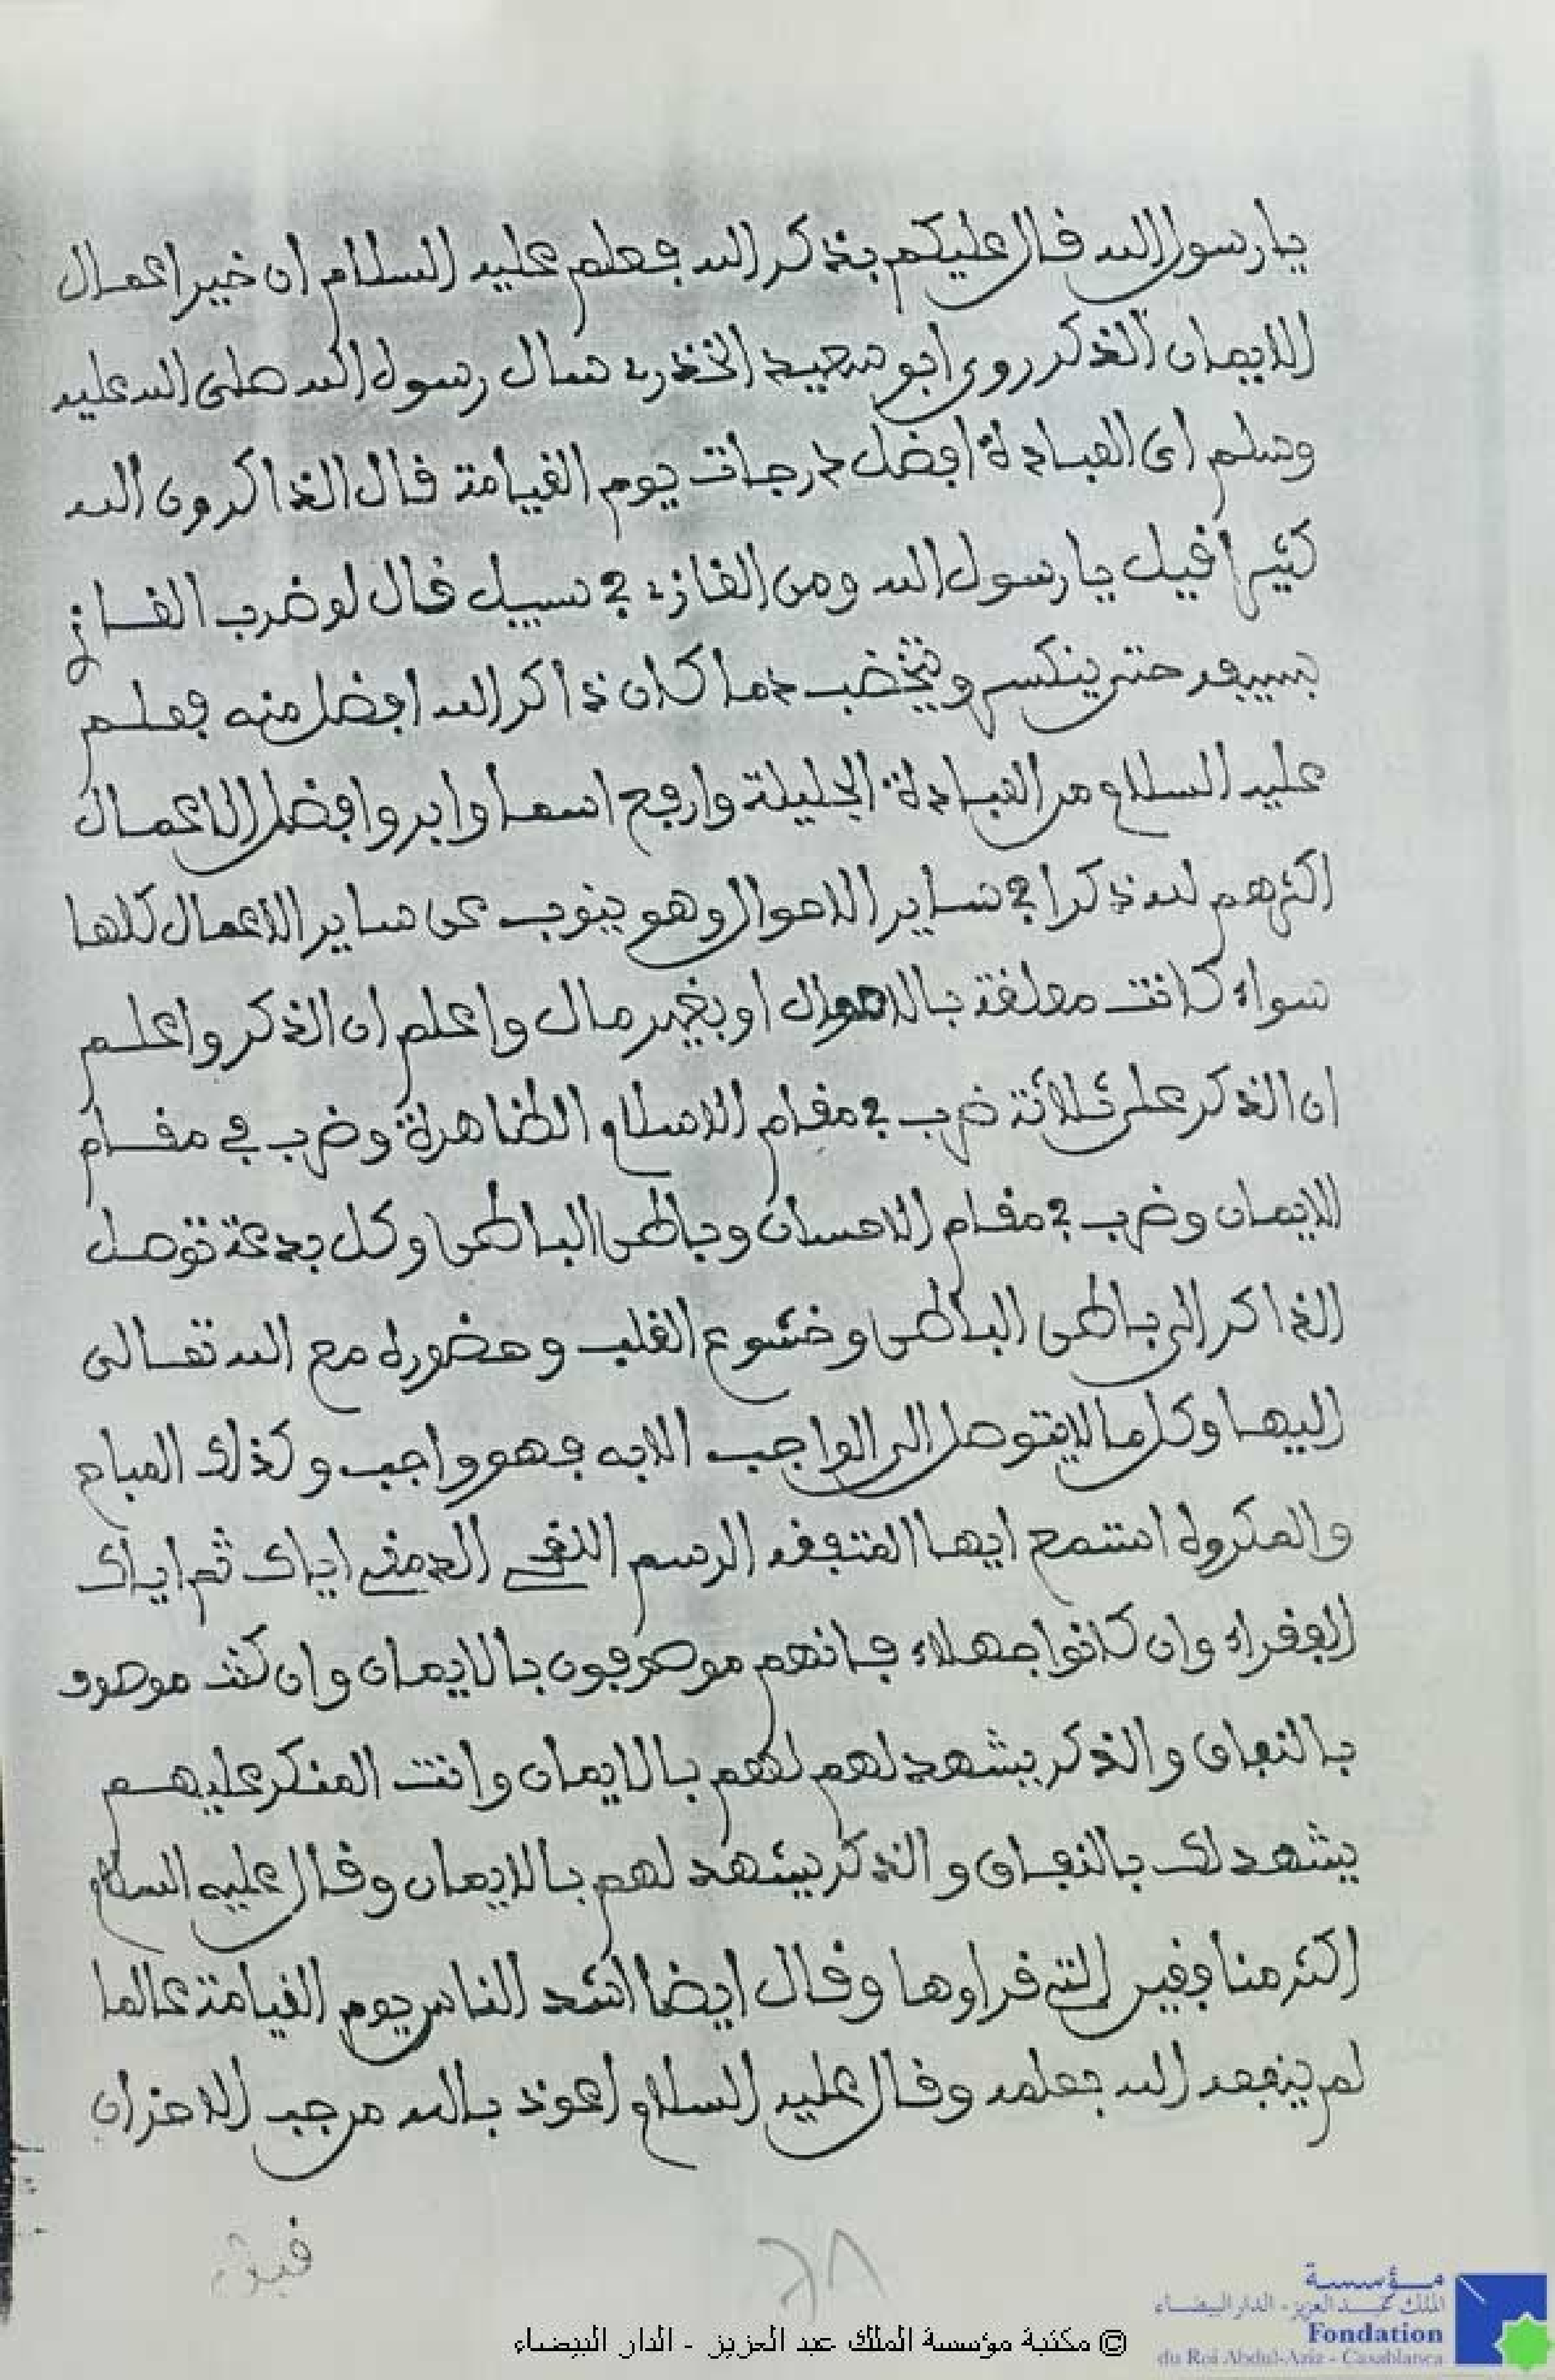 يا رسول الله قال عليكم بذكر الله فعلم عليه السلام ان خير اعمال
الايمان الذكر روى ابو سعيد الخذري سال رسول الله صلى الله عليه
وسلم اى العبادة افضل درجات يوم القيامة قال الذاكرون الله
كثيرا قيل يا رسول الله ومن الغازي في سبيل قال لو ضرب الغازي
بسيفه حتى ينكسر ويتخضب دما كان ذاكر الله افضل منه فعلم
عليه السلام من العبادة الجليلة وارفع اسما وابر وافضل الاعمال
اكثرهم لله ذكرا في ساير الاحوال وهو ينوب عن ساير الاعمال كلها
سواء كانت معلقة بالاموال او بغير مال واعلم ان الذكر واعلم
ان الذكر على ثلاثة ضرب في مقام الاسلام الظاهرة وضرب في مقام
الايمان وضرب في مقام الاحسان وباطن الباطن وكل بدعة توصل
الذاكر الى باطن الباطن وخشوع القلب وحضوره مع الله تعالى
اليها وكل ما لا يتوصل الى الواجب الا به فهو واجب وكذلك المباح
والمكروه استمع ايها المتفقه الرسم اياك ثم اياك
الفقراء وان كانوا جهلاء فانهم موصوفون بالايمان وان كنت موصوف
بالنفاق والذكر يشهد لهم لهم بالايمان وانت المنكر عليهم
يشهد لك بالنفاق والذكر يشهد لهم بالايمان وقال عليه السلام
اكثر منافقين امتي قراوها وقال ايضا اشد الناس يوم القيامة عالما
لم ينفعه الله بعلمه وقال عليه السلام اعوذ بالله من جب الاحزان
قيل
٦٨
مؤسسة
الملك عبد العزيز - الدار البيضاء
Fondation
du Roi Abdul-Aziz - Casablanca
© مكتبة مؤسسة الملك عبد العزيز - الدار البيضاء